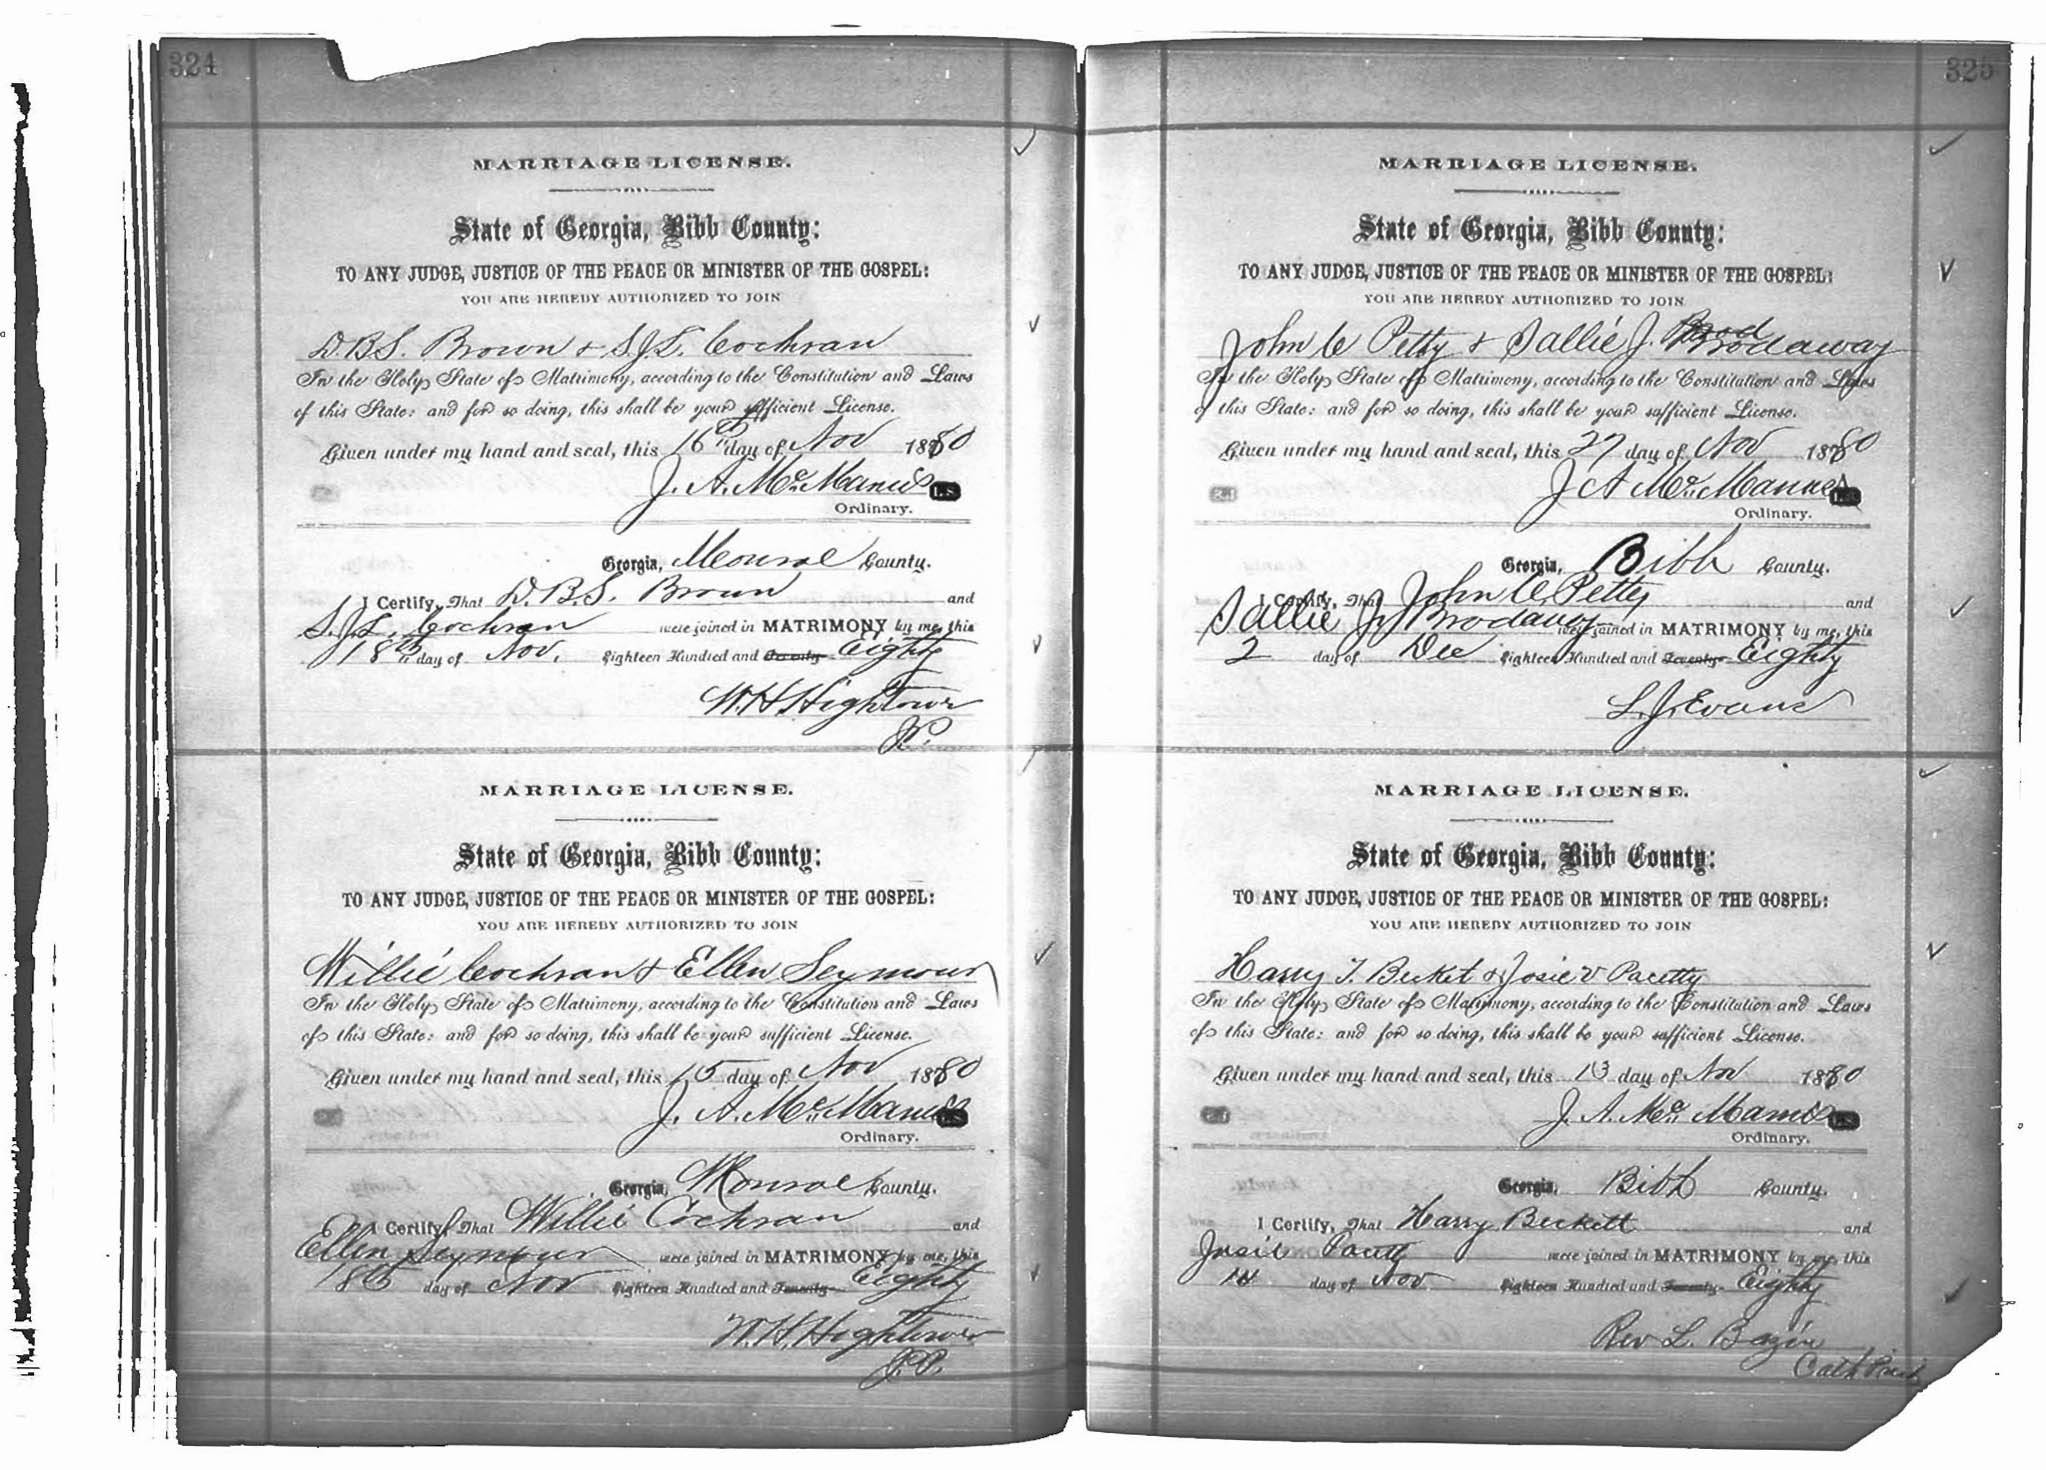 324
MARRIAGE LICENSE.
State of Georgia, Bibb County:
TO ANY JUDGE, JUSTICE OF THE PEACE OR MINISTER OF THE GOSPEL:
YOU ARE HEREBY AUTHORIZED TO JOIN
D.B.S. Brown & S.J.L. Cochran
In the Holy State of Matrimony, according to the Constitution and Laws
of this State: and for so doing, this shall be your sufficient License.
Given under my hand and seal, this 16th day of Nov 1880
J. A. McManus L.S.
Ordinary.
Georgia, Monroe County.
I Certify, That D.B.S. Brown and
S.J.L. Cochran were joined in MATRIMONY by me, this
18th day of Nov. Eighteen Hundred and Seventy Eighty
W.H. Hightower
J.P.
MARRIAGE LICENSE.
State of Georgia, Bibb County:
TO ANY JUDGE, JUSTICE OF THE PEACE OR MINISTER OF THE GOSPEL:
YOU ARE HEREBY AUTHORIZED TO JOIN
Willie Cochran & Ellen Seymour
In the Holy State of Matrimony, according to the Constitution and Laws
of this State: and for so doing, this shall be your sufficient License.
Given under my hand and seal, this 15 day of Nov 1880
J. A. McManus L.S.
Ordinary.
Georgia, Monroe County.
I Certify, That Willie Cochran and
Ellen Seymour were joined in MATRIMONY by me, this
18th day of Nov Eighteen Hundred and Seventy Eighty
W.H. Hightower
J.P.
325
MARRIAGE LICENSE.
State of Georgia, Bibb County:
TO ANY JUDGE, JUSTICE OF THE PEACE OR MINISTER OF THE GOSPEL:
YOU ARE HEREBY AUTHORIZED TO JOIN
John C Petty & Sallie J. Brodaway
In the Holy State of Matrimony, according to the Constitution and Laws
of this State: and for so doing, this shall be your sufficient License.
Given under my hand and seal, this 27 day of Nov 1880
J A McManus L.S.
Ordinary.
Georgia, Bibb County.
I Certify, That John C. Petty and
Sallie J. Brodaway were joined in MATRIMONY by me, this
2 day of Dec Eighteen Hundred and Seventy Eighty
L. J. Evans
MARRIAGE LICENSE.
State of Georgia, Bibb County:
TO ANY JUDGE, JUSTICE OF THE PEACE OR MINISTER OF THE GOSPEL:
YOU ARE HEREBY AUTHORIZED TO JOIN
Harry T. Becket & Josie V Pacetty
In the Holy State of Matrimony, according to the Constitution and Laws
of this State: and for so doing, this shall be your sufficient License.
Given under my hand and seal, this 13 day of Nov 1880
J. A. McManus L.S.
Ordinary.
Georgia, Bibb County.
I Certify, That Harry Beckett and
Josie Pacetty were joined in MATRIMONY by me, this
14 day of Nov Eighteen Hundred and Seventy Eighty
Rev L. Bazin
Cath Priest